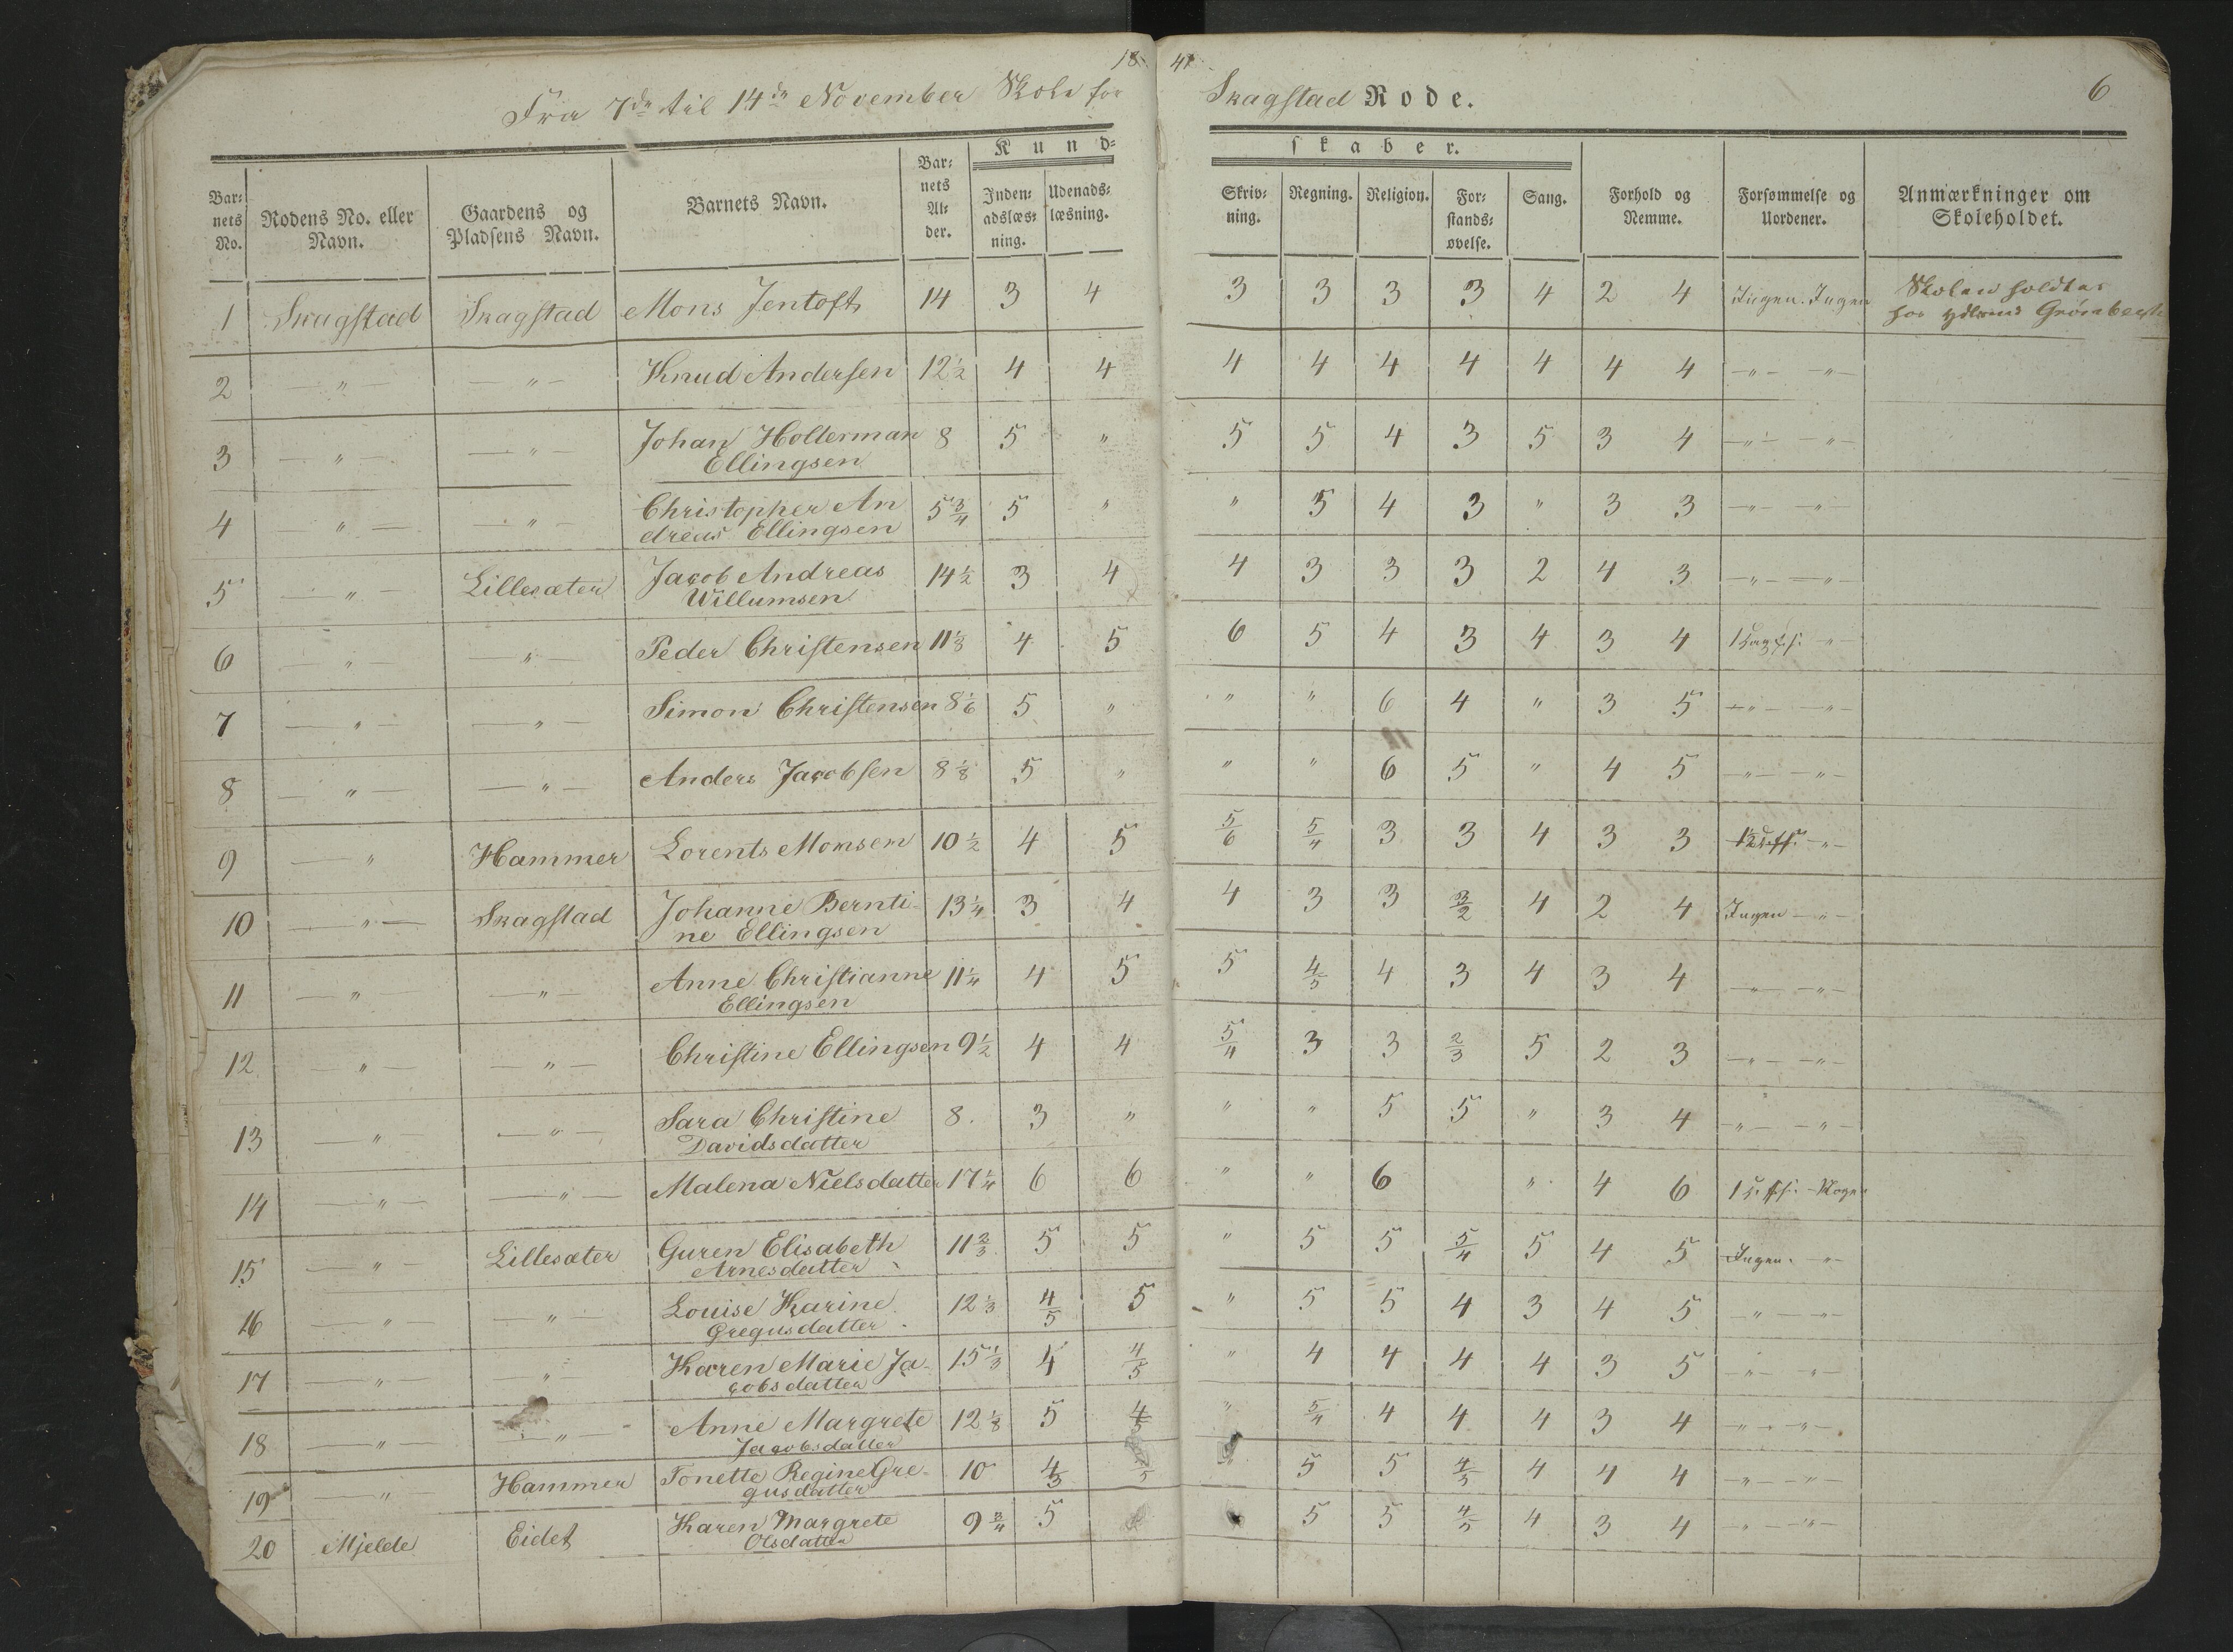 18 41
Fra 7de til 14de November Skole for Skagstad Rode. 6
Bar= nets No. | Rodens No. eller Navn. | Gaardens og Pladsens Navn. | Barnets Navn. | Bar= nets Al= der. | Kund= skaber. | Inden= adslæs= ning. | Udenads= læsning. | Skriv= ning. | Regning. | Religion. | For= stands= øvelse. | Sang. | Forhold og Nemme. | Forsømmelse og Uordener. | Anmærkninger om Skoleholdet.
1 Skagstad Skagstad Mons Jentoft 14 3 4 3 3 3 3 4 2 4 Ingen. Ingen Skolen holdtes
hos
2 — " — — " — Knud Andersen 12 1/2 4 4 4 4 4 4 4 4 4 — " — — " —
3 — " — — " — Johan Holterman 8 5 " 5 5 4 3 5 3 4 — " — — " —
Ellingsen
4 — " — — " — Christopher An 5 3/4 5 " " 5 4 3 " 3 3 — " — — " —
dreas Ellingsen
5 — " — Lillesæter Jacob Andreas 14 1/2 3 4 4 3 3 3 2 4 3 — " — — " —
Willumsen
6 — " — — " — Peder Christensen 11 1/3 4 5 6 5 4 3 4 3 4 1 " —
7 — " — — " — Simon Christensen 8 1/6 5 " " " 6 4 " 3 5 — " — — " —
8 — " — — " — Anders Jacobsen 8 1/8 5 " " " 6 5 " 4 5 — " — — " —
9 — " Hammer Lorents Monsen 10 1/2 4 5 5/6 5/4 3 3 4 3 3 — " —
10 — " — Skagstad Johanne Bernti- 13 1/4 3 4 4 3 3 3/2 4 2 4 Ingen — " —
ne Ellingsen
11 — " — — " — Anne Christianne 11 1/4 4 5 5 4/5 4 3 4 3 4 — " — — " —
Ellingsen
12 — " — — " — Christine Ellingsen 9 1/2 4 4 5/4 3 3 2/3 5 2 3 — " — — " —
13 — " — — " — Sara Christine 8. 3 " " " 5 5 " 3 4 — " — — " —
Davidsdatter
14 — " — — " — Malena Nielsdatter 17 1/4 6 6 " " 6 " 4 6 1
15 — " — Lillesæter Guren Elisabeth 11 2/3 5 5 " 5 5 5/4 5 4 5 Ingen. — " —
Arnesdatter
16 — " — — " — Louise Karine 12 1/3 4/5 5 " 5 5 4 3 4 5 " — " —
Gregusdatter
17 — " — — " — Karen Marie Ja- 15 1/3 4 4/5 " 4 4 4 4 3 5 — " — " —
cobsdatter
18 — " — — " — Anne Margrete 12 1/8 5 4/5 " 5/4 4 4 4 3 4 — " — " —
Jacobsdatter
19 — " — Hammer Tonette Regine Gre- 10 4/3 5 5 4/5 4 4 4 — " — " —
gusdatter
20 Mjelde Eidet Karen Margrete 9 3/4 5 5 5 4/5 4 3 4 — " — " —
Olsdatter